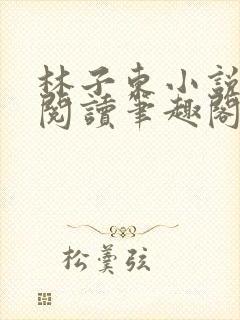 林子東小說
閱讀筆趣閣
松羹弦